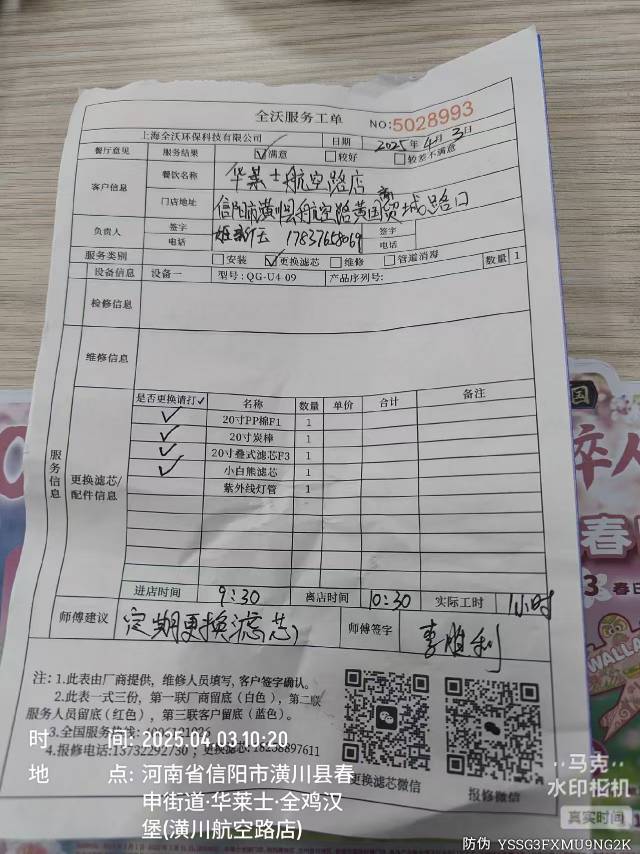 全沃服务工单
NO:5028993
上海全沃环保科技有限公司 日期 2025年4月3日
餐厅意见 服务结果 ☑满意 □较好 □较差不满意
客户信息 餐饮名称 华莱士航空路店
门店地址 信阳市潢川县航空路黄国商贸城路口
负责人 签字 签字
电话 17837658069 电话
服务类别 □安装 ☑更换滤芯 □维修 □管道消毒 数量 1
设备信息 设备一 型号:QG-U4 09 产品序列号:
检修信息
维修信息
服务信息
更换滤芯/配件信息
是否更换请打√ 名称 数量 单价 合计 备注
✓ 20寸PP棉F1 1
✓ 20寸炭棒 1
✓ 20寸叠式滤芯F3 1
✓ 小白熊滤芯 1
紫外线灯管 1
进店时间 9:30 离店时间 10:30 实际工时 1小时
师傅建议 定期更换滤芯 师傅签字 李胜利
注:1.此表由厂商提供,维修人员填写,客户签字确认。
2.此表一式三份,第一联厂商留底(白色),第二联
服务人员留底(红色),第三联客户留底(蓝色)。
3.全国服务热线:
4.报修电话:13732292730;更换滤芯:18258897611
更换滤芯微信
报修微信
时 间:2025.04.03 10:20
地 点:河南省信阳市潢川县春
申街道·华莱士·全鸡汉
堡(潢川航空路店)
马克
水印相机
真实时间
防伪 YSSG3FXMU9NG2K
国
卒人
春
3 春日
WALLA